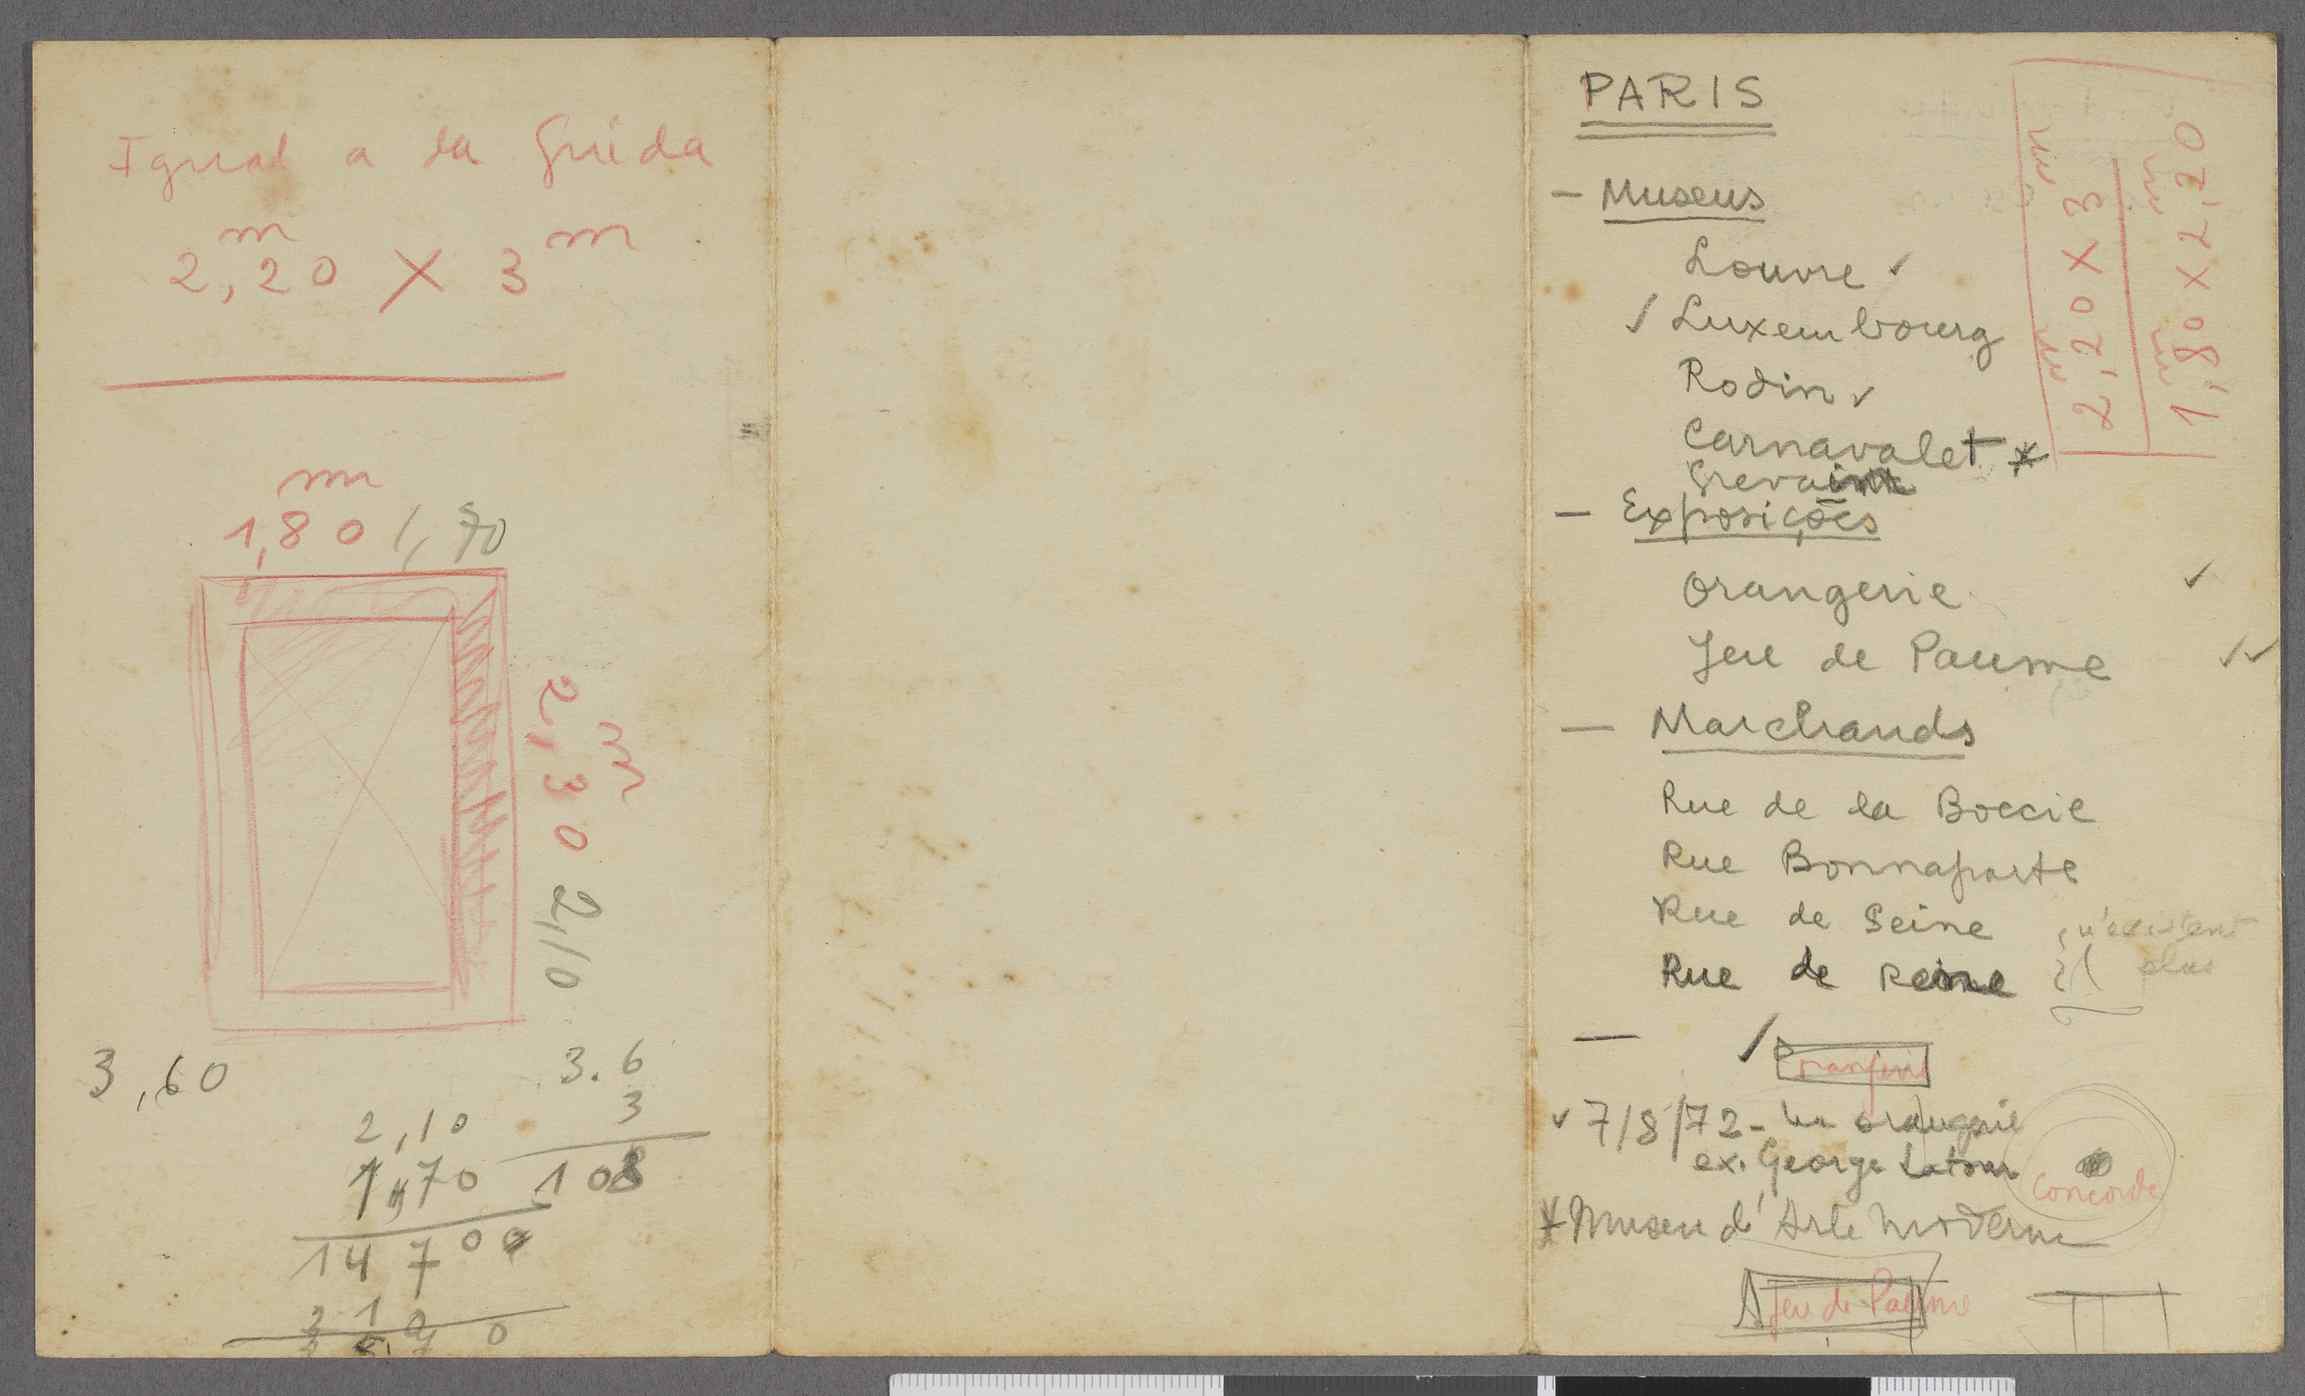 Igual a da Guida
2,20 m X 3 m
m
1,80 1,70
2,30 m 2,10
3,60
3.6
3
108
2,10
1,70
14700
210
3570
PARIS
2,20 m X 3 m
1,80 m X 2,20 m
— Museus
Louvre ✓
✓ Luxembourg
Rodin ✓
Carnavalet *
— Exposições
Orangerie ✓
Jeu de Paume ✓✓
— Marchands
Rue de la Boecie
Rue Bonnaparte
Rue de Seine
Rue de Reine
n'existent
plus
— ✓
Orangerie
✓ 7/8/72 - orangerie
ex. George Latour
Concorde
* Museu d'Arte Moderne
Jeu de Paume